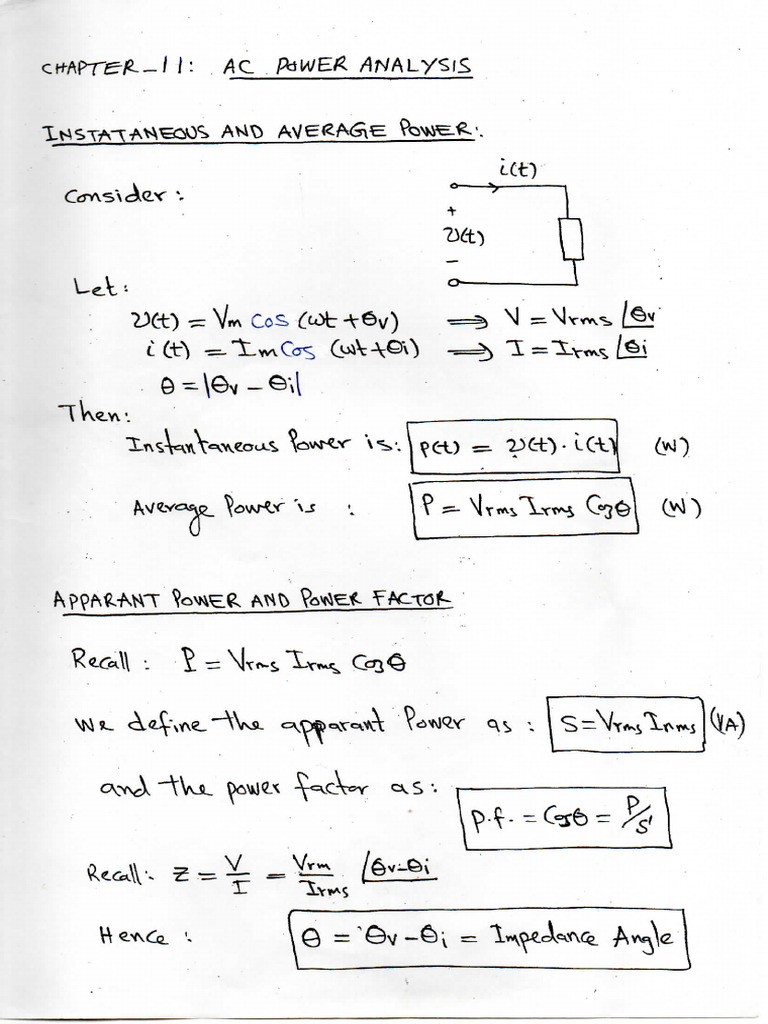 CHAPTER-11: AC POWER ANALYSIS
INSTATANEOUS AND AVERAGE POWER:.
Consider:
i(t)
+
v(t)
-
Let:
v(t) = Vm Cos (ωt + θv) ⟹ V = Vrms ∠θv
i(t) = Im Cos (ωt + θi) ⟹ I = Irms ∠θi
θ = |θv - θi|
Then:
Instantaneous Power is: P(t) = v(t) · i(t) (W)
Average Power is : P = Vrms Irms Cosθ (W)
APPARANT POWER AND POWER FACTOR
Recall: P = Vrms Irms Cosθ
We define the apparant Power as : S = Vrms Irms (VA)
and the power factor as: p.f. = Cosθ = P/S
Recall: Z = V/I = Vrm/Irms ∠θv-θi
Hence : θ = θv - θi = Impedance Angle